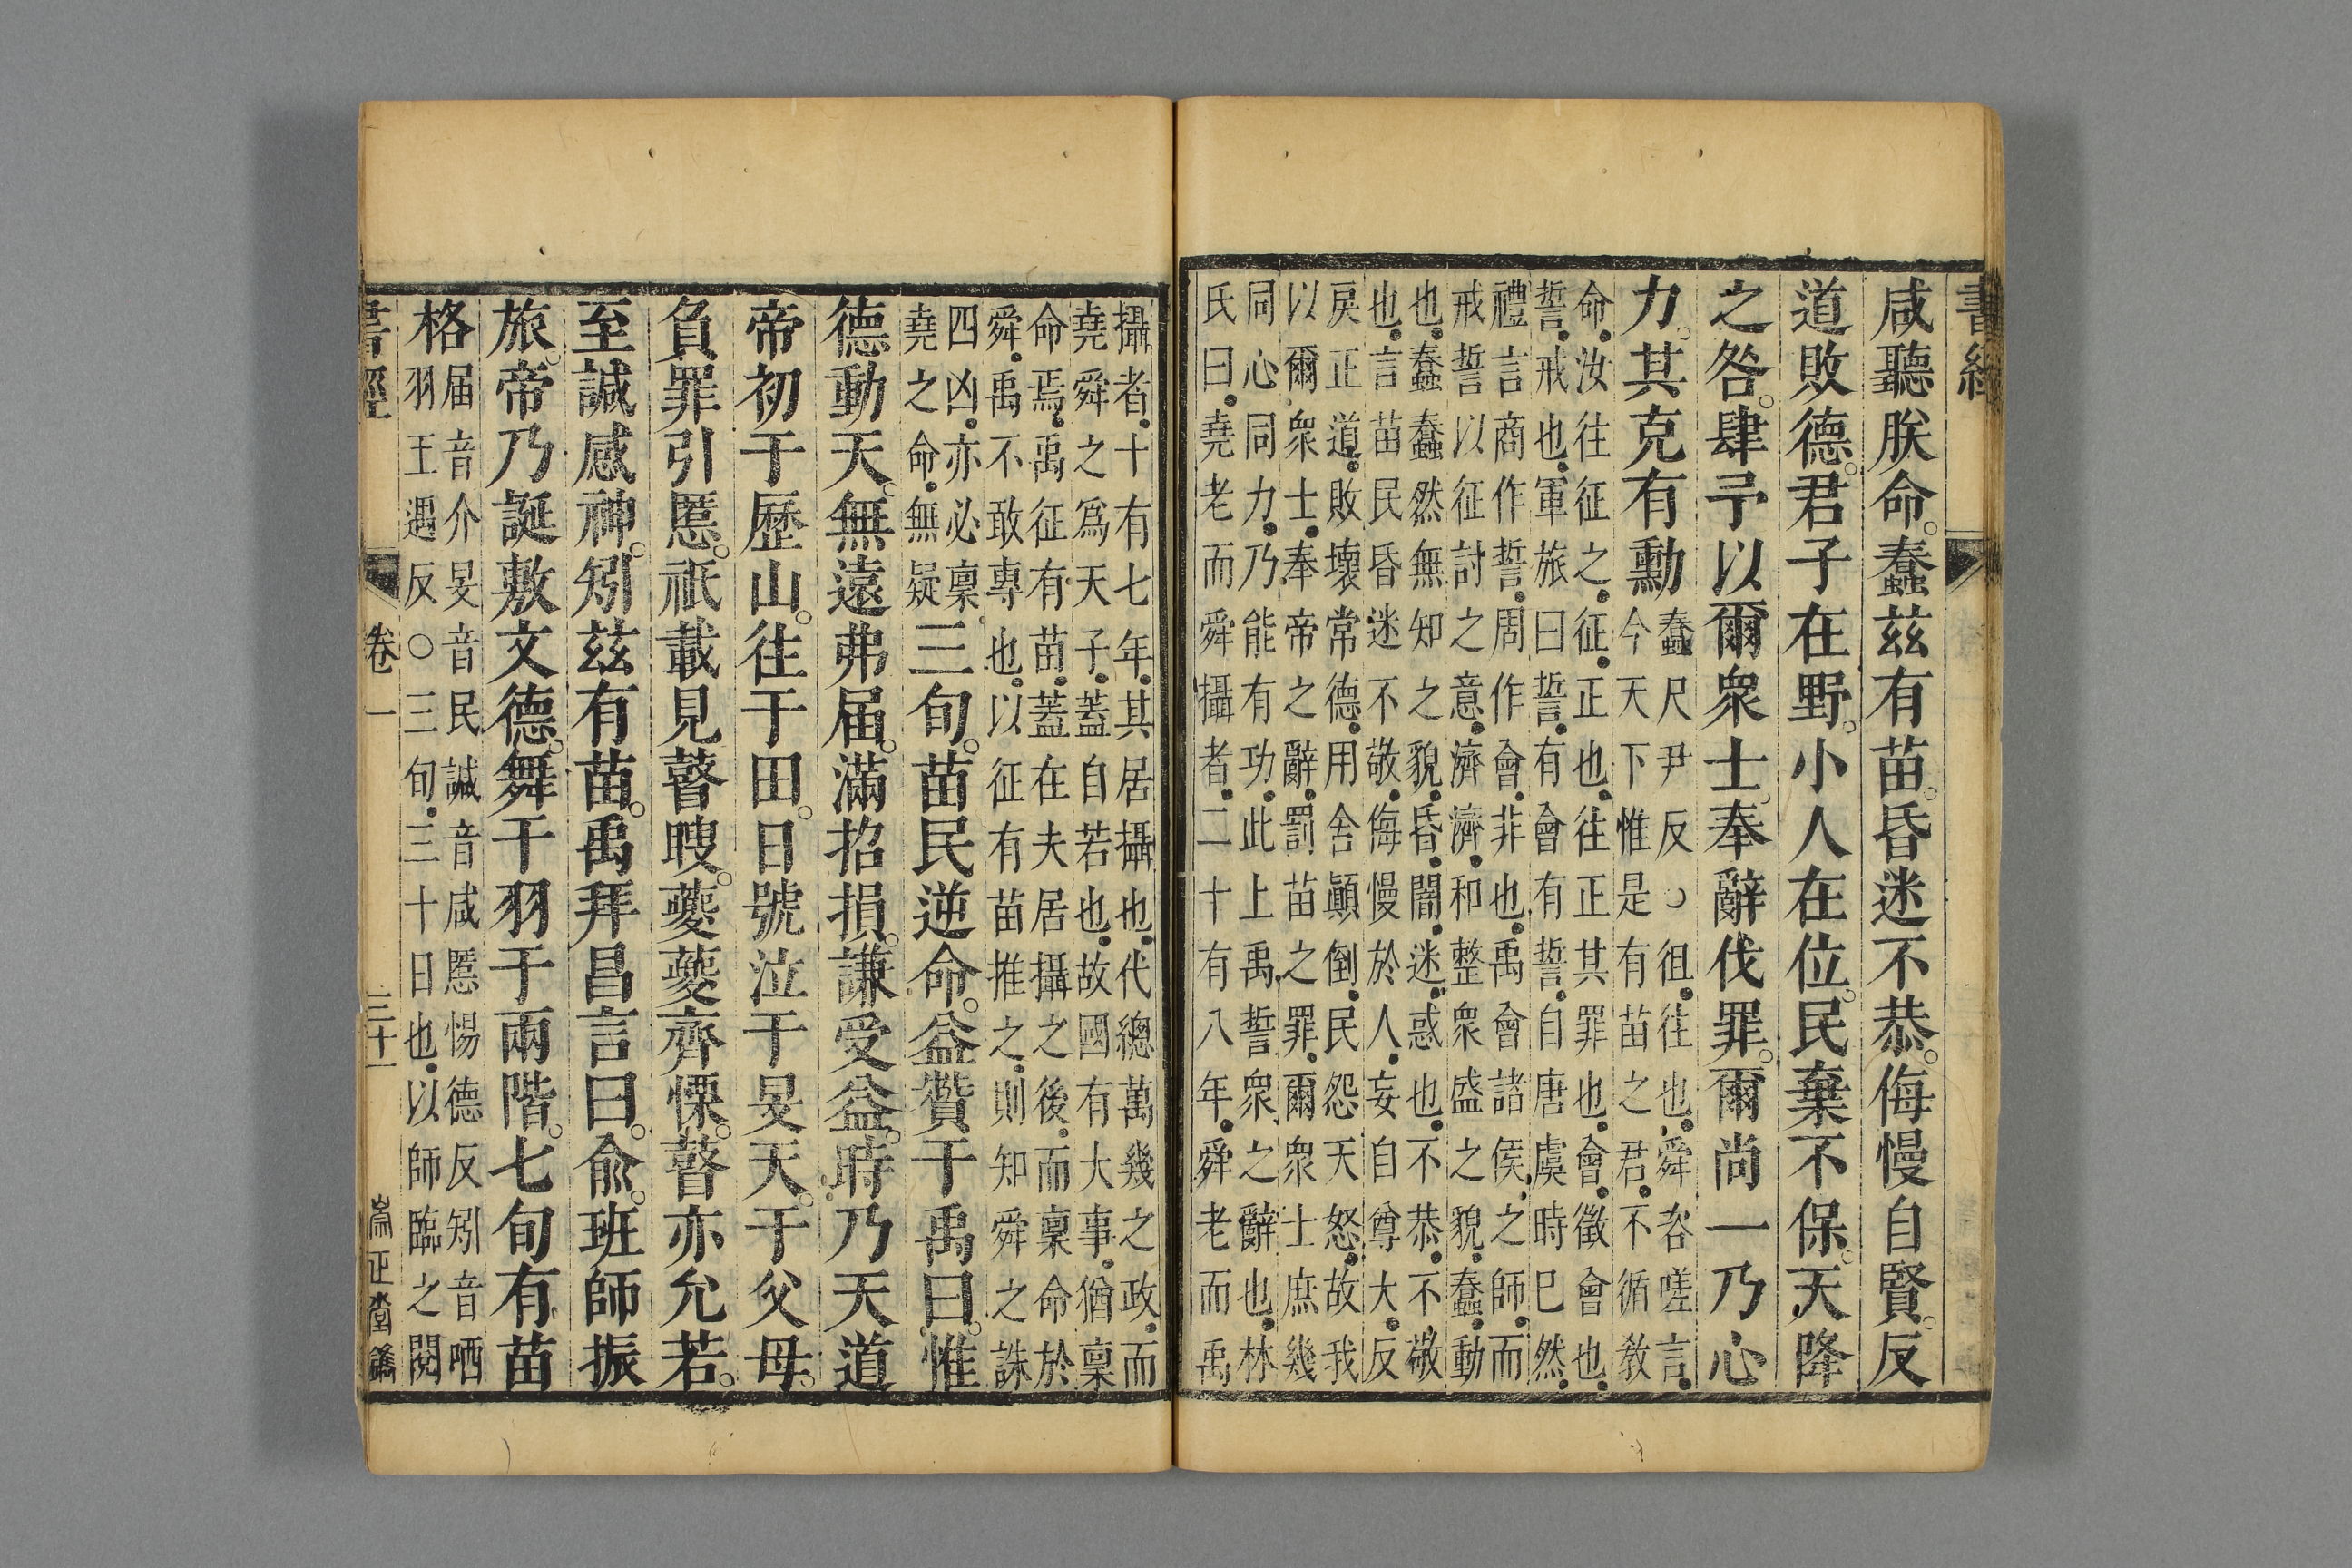 書經
咸聽朕命。蠢茲有苗。昏迷不恭。侮慢自賢。反
道敗德。君子在野。小人在位。民棄不保。天降
之咎。肆予以爾衆士。奉辭伐罪。爾尚一乃心
力。其克有勳
蠢尺尹反○徂。往也。舜咨嗟言。
今天下惟是有苗之君。不循敎
命。汝往征之。征。正也。往正其罪也。會。徵會也。
誓。戒也。軍旅曰誓。有會有誓。自唐虞時已然。
禮言商作誓。周作會。非也。禹會諸侯之師。而
戒誓以征討之意。濟濟。和整衆盛之貌。蠢。動
也。蠢蠢然無知之貌。昏。闇。迷。惑也。不恭。不敬
也。言苗民昏迷不敬。侮慢於人。妄自尊大。反
戾正道。敗壞常德。用舍顚倒。民怨天怒。故我
以爾衆士。奉帝之辭。罰苗之罪。爾衆士庶幾
同心同力。乃能有功。此上禹誓衆之辭也。林
氏曰。堯老而舜攝者。二十有八年。舜老而禹
攝者。十有七年。其居攝也。代總萬幾之政。而
堯舜之爲天子。蓋自若也。故國有大事。猶稟
命焉。禹征有苗。蓋在夫居攝之後。而稟命於
舜。禹不敢專也。以征有苗推之。則知舜之誅
四凶。亦必稟
堯之命。無疑
三旬。苗民逆命。益贊于禹曰。惟
德動天。無遠弗届。滿招損。謙受益。時乃天道
帝初于歷山。往于田。日號泣于旻天。于父母。
負罪引慝。祗載見瞽瞍。夔夔齊慄。瞽亦允若。
至諴感神。矧茲有苗。禹拜昌言曰。兪。班師振
旅。帝乃誕敷文德。舞干羽于兩階。七旬有苗
格
届音介旻音民諴音咸慝惕德反矧音哂
羽王遇反○三旬。三十日也。以師臨之閱
書經 卷一 三十一 崇正堂鐫